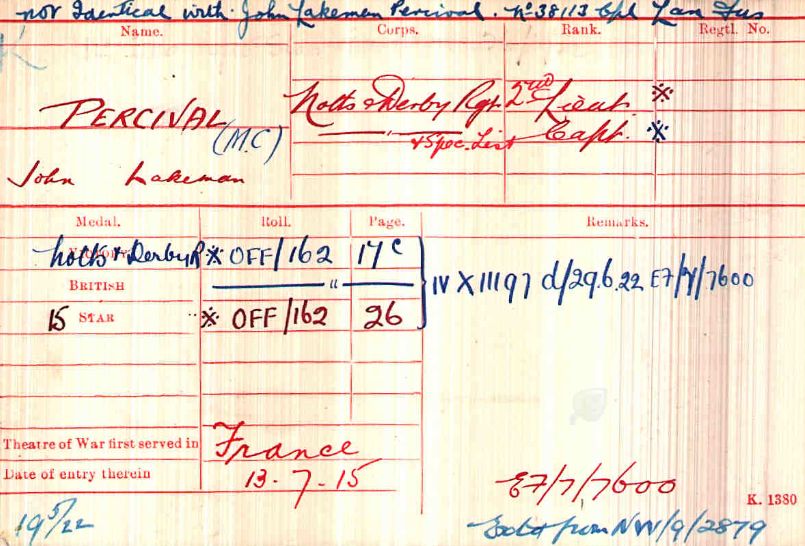 not Identical with John Lakeman Percival. No 38113 Cpl Lan Fus
Name. Corps. Rank. Regtl. No.
PERCIVAL (M.C) Notts & Derby Rgt 2nd Lieut ※
+ Spec. List Capt. ※
John Lakeman
Medal. Roll. Page. Remarks.
VICTORY Notts & Derby R ※ OFF/162 17c
BRITISH " IV X 11197 d/29.6.22 E7/Y/7600
15 STAR ※ OFF/162 26
Theatre of War first served in France
Date of entry therein 13-7-15
E7/Y/7600
K. 1380
19 5/22 from NW/9/2879